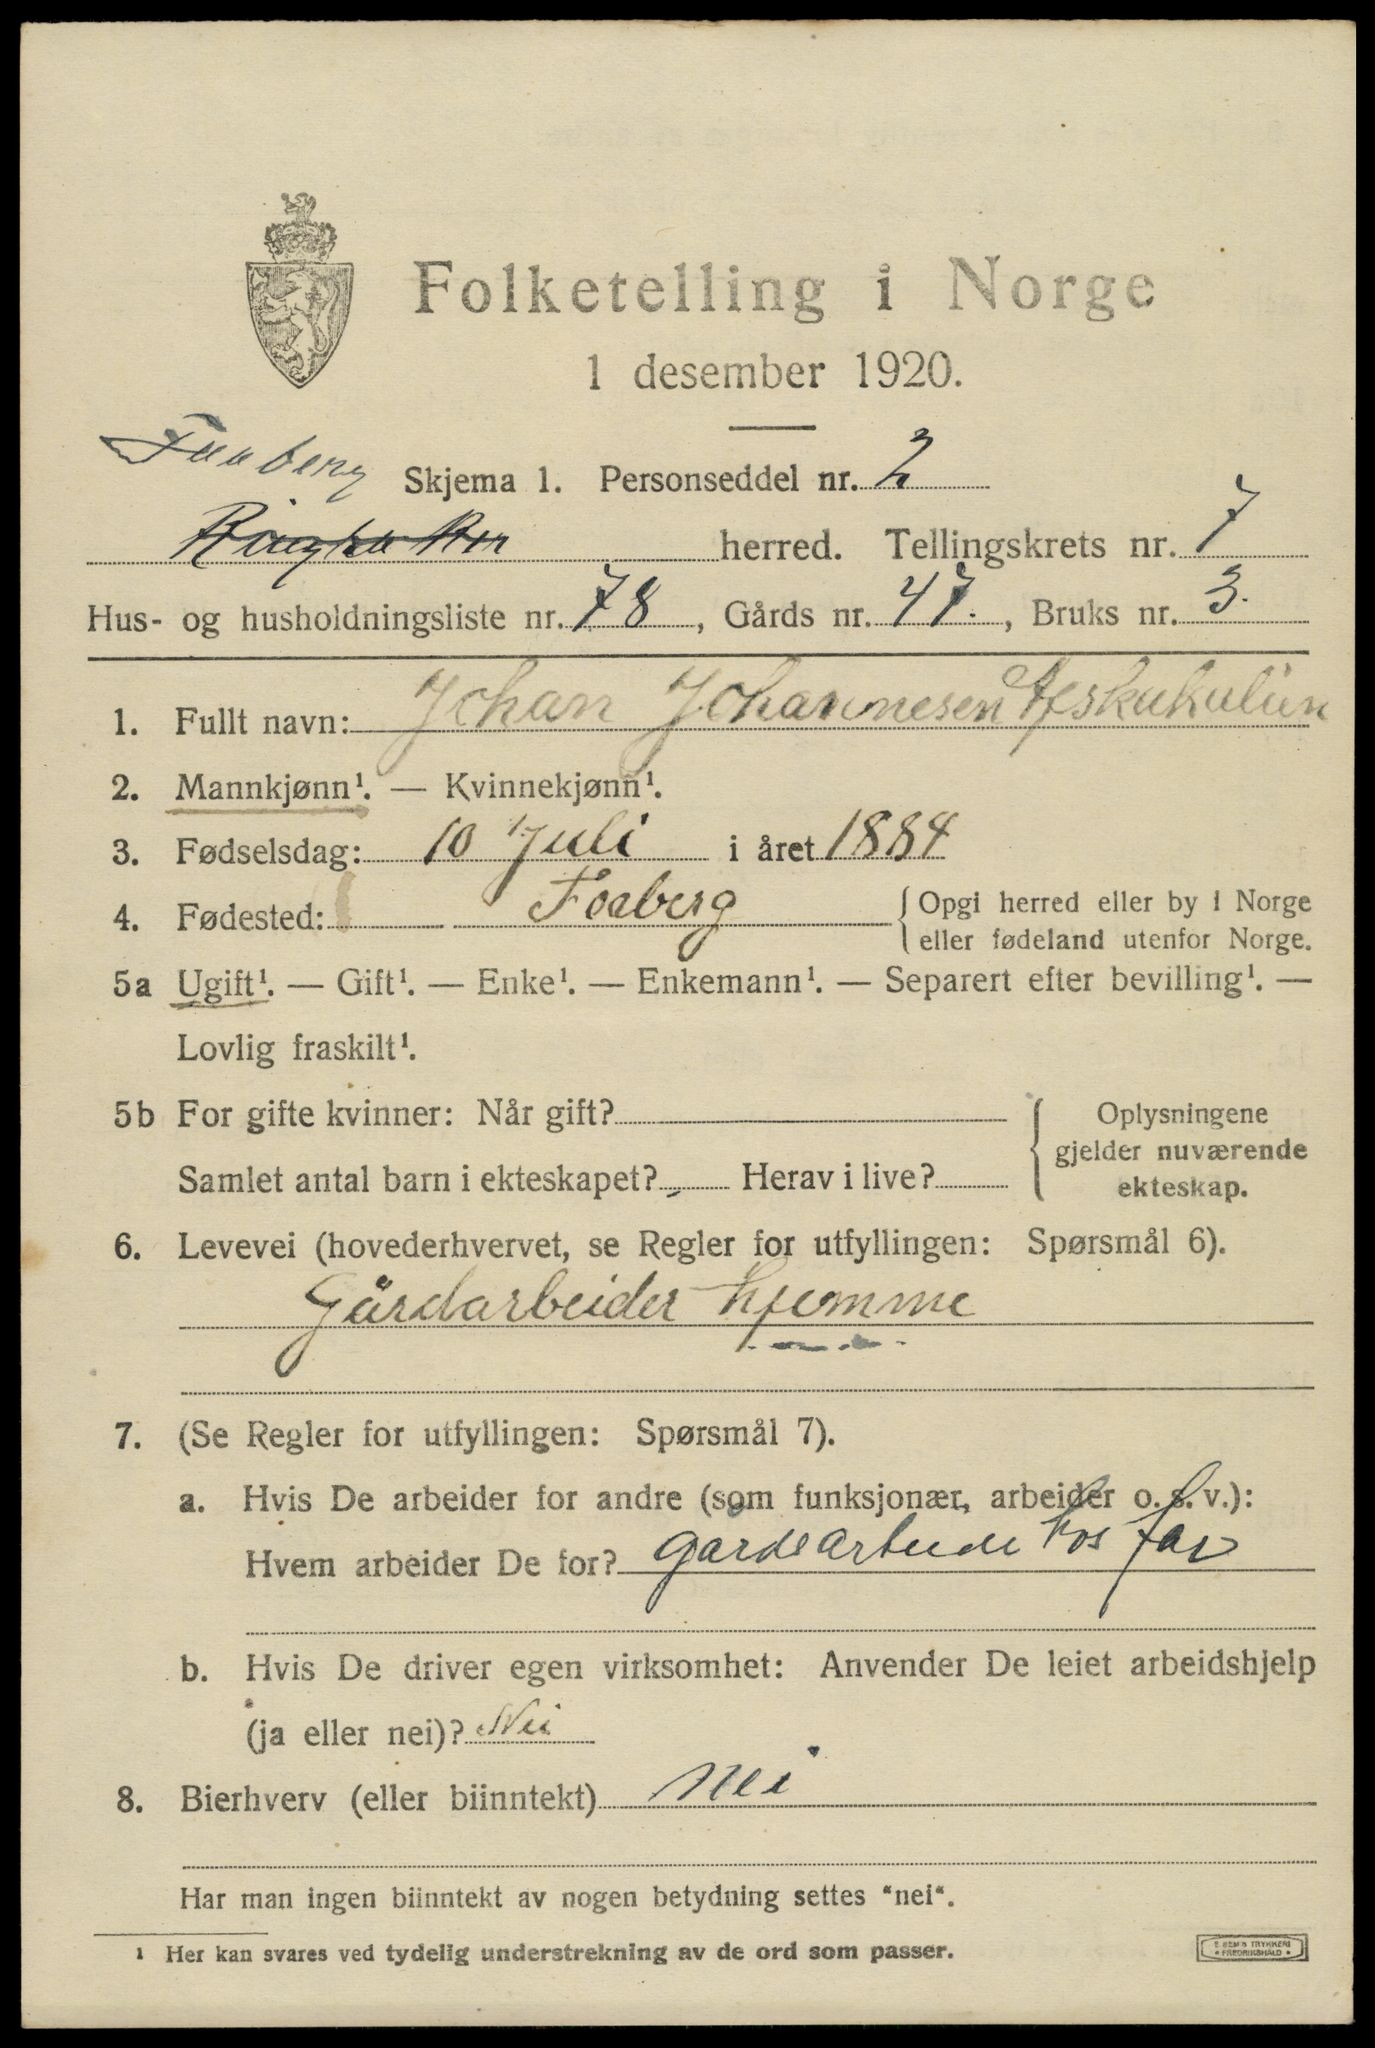 Folketelling i Norge
1 desember 1920.
Faaberg
Skjema 1. Personseddel nr. 2
herred. Tellingskrets nr. 7
Hus- og husholdningsliste nr. 78, Gårds nr. 47., Bruks nr. 3.
1. Fullt navn: Johan Johannesen
2. Mannkjønn¹. — Kvinnekjønn¹.
3. Fødselsdag: 10 Juli i året 1884
4. Fødested: Foaberg { Opgi herred eller by i Norge
eller fødeland utenfor Norge.
5a Ugift¹. — Gift¹. — Enke¹. — Enkemann¹. — Separert efter bevilling¹. —
Lovlig fraskilt¹.
5b For gifte kvinner: Når gift? { Oplysningene
gjelder nuværende
Samlet antal barn i ekteskapet? Herav i live? ekteskap.
6. Levevei (hovederhvervet, se Regler for utfyllingen: Spørsmål 6).
Gårdarbeider hjemme
7. (Se Regler for utfyllingen: Spørsmål 7).
a. Hvis De arbeider for andre (som funksjonær, arbeider o. s. v.):
Hvem arbeider De for? hos far
b. Hvis De driver egen virksomhet: Anvender De leiet arbeidshjelp
(ja eller nei)? Nei
8. Bierhverv (eller biinntekt) Nei
Har man ingen biinntekt av nogen betydning settes "nei".
¹ Her kan svares ved tydelig understrekning av de ord som passer.
TRYKKERI
FREDRIKSHALD